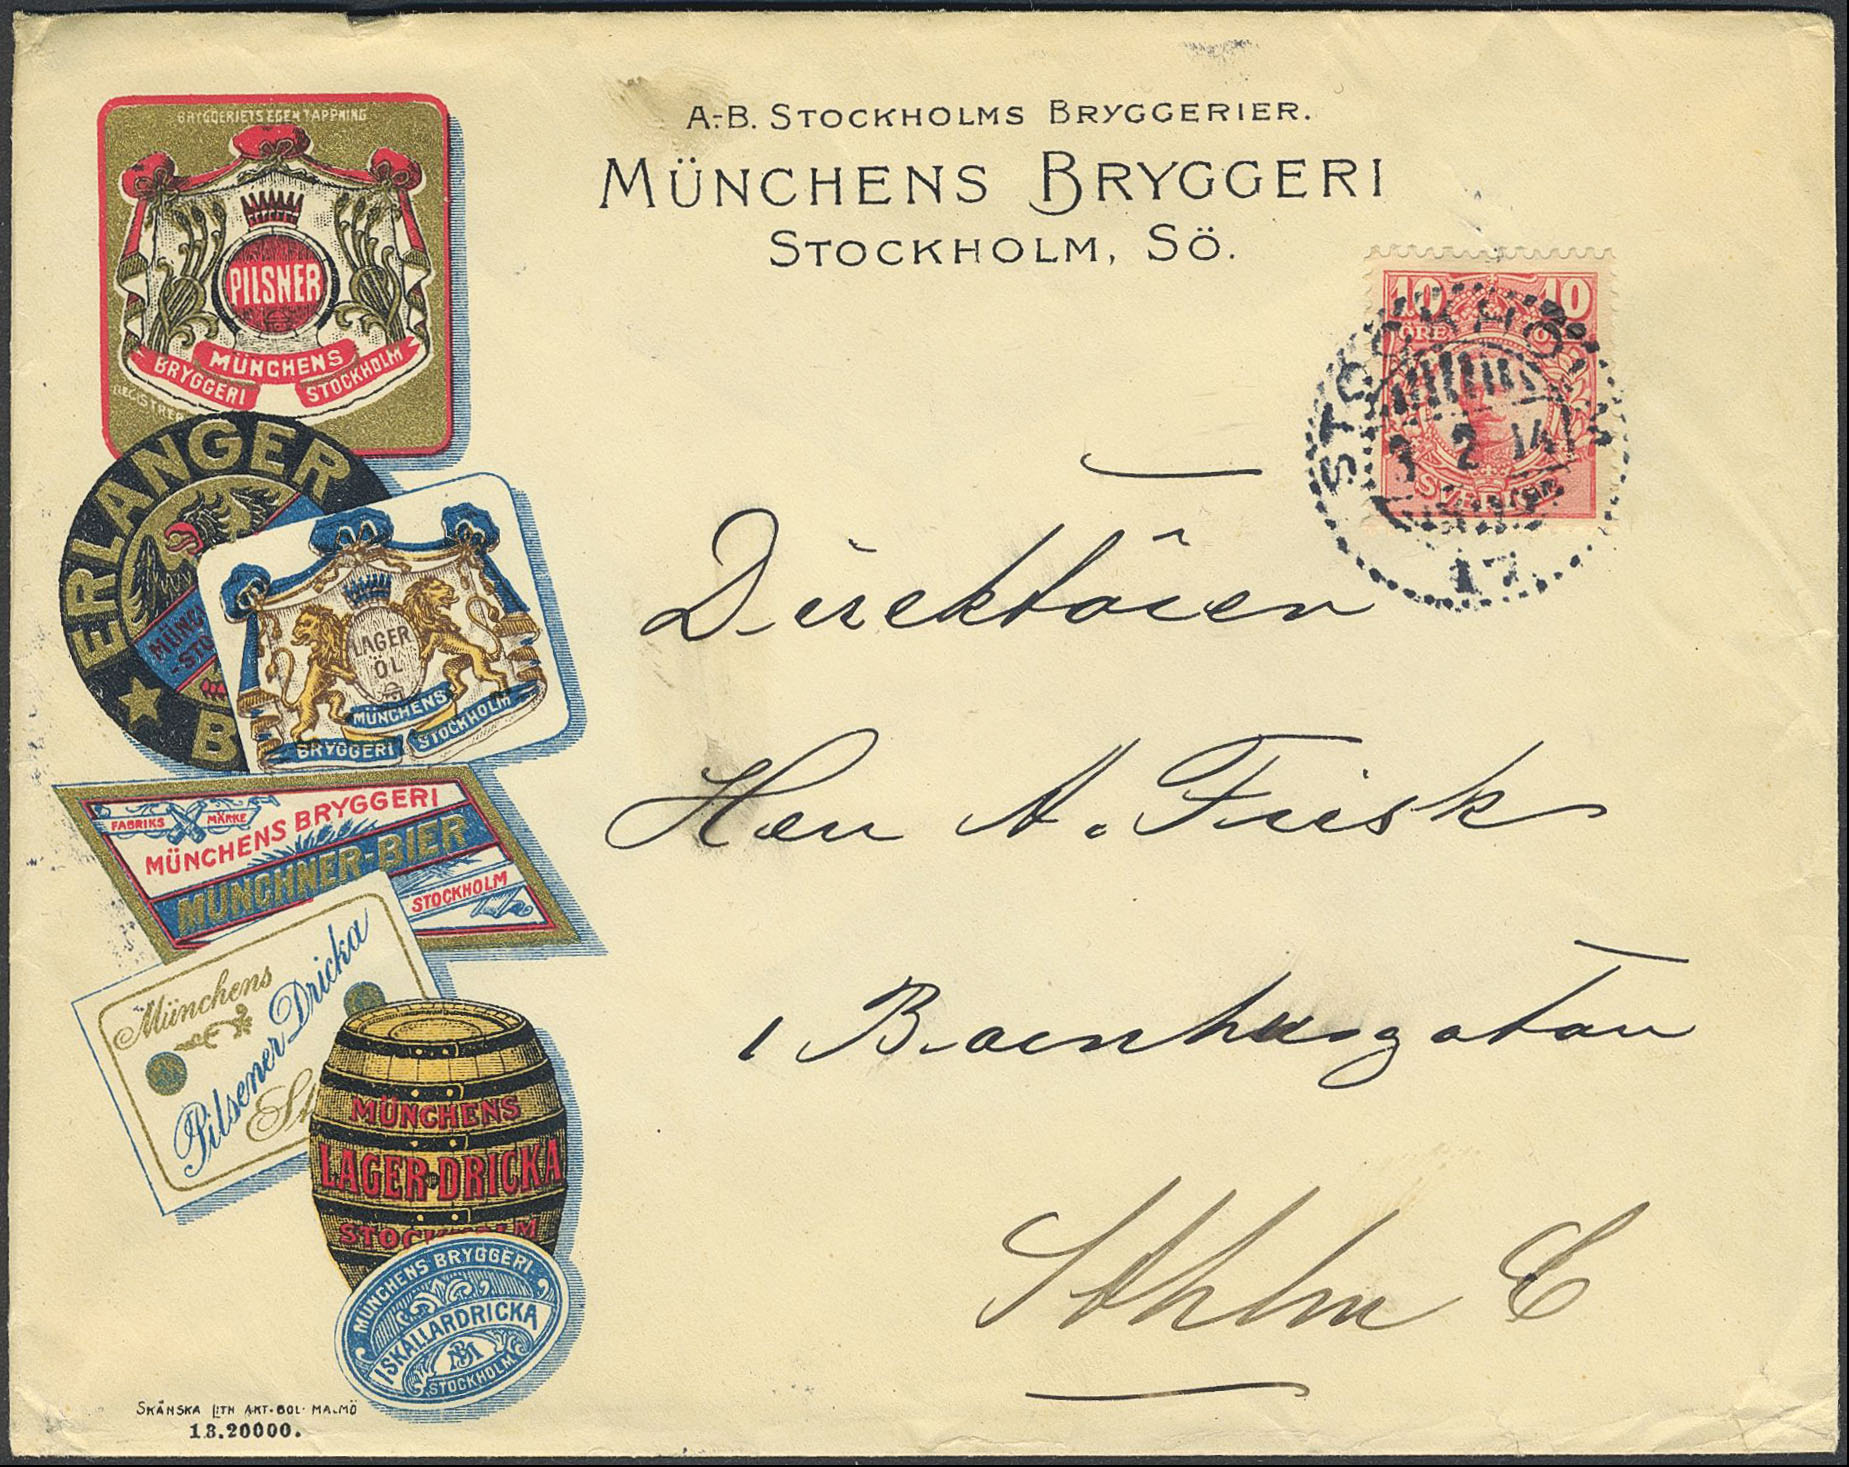 A.-B. STOCKHOLMS BRYGGERIER.
MÜNCHENS BRYGGERI
STOCKHOLM, SÖ.
BRYGGERIETS EGEN TAPPNING
PILSNER
BRYGGERI MÜNCHENS STOCKHOLM
ERLANGER
LAGER
ÖL
MÜNCHENS
BRYGGERI STOCKHOLM
FABRIKS MÄRKE
MÜNCHENS BRYGGERI
MÜNCHNER-BIER
STOCKHOLM
Münchens
Pilsener Dricka
MÜNCHENS
LAGER-DRICKA
STOCKHOLM
MÜNCHENS BRYGGERI
ISKÄLLARDRICKA
STOCKHOLM
SKÅNSKA LITH AKT-BOL. MALMÖ
13.20000.
10 10
ÖRE
SVERIGE
STOCKHOLM
3 2 14
17
Direktören
Herr A. Frisk
1 Barnhusgatan
Sthlm C